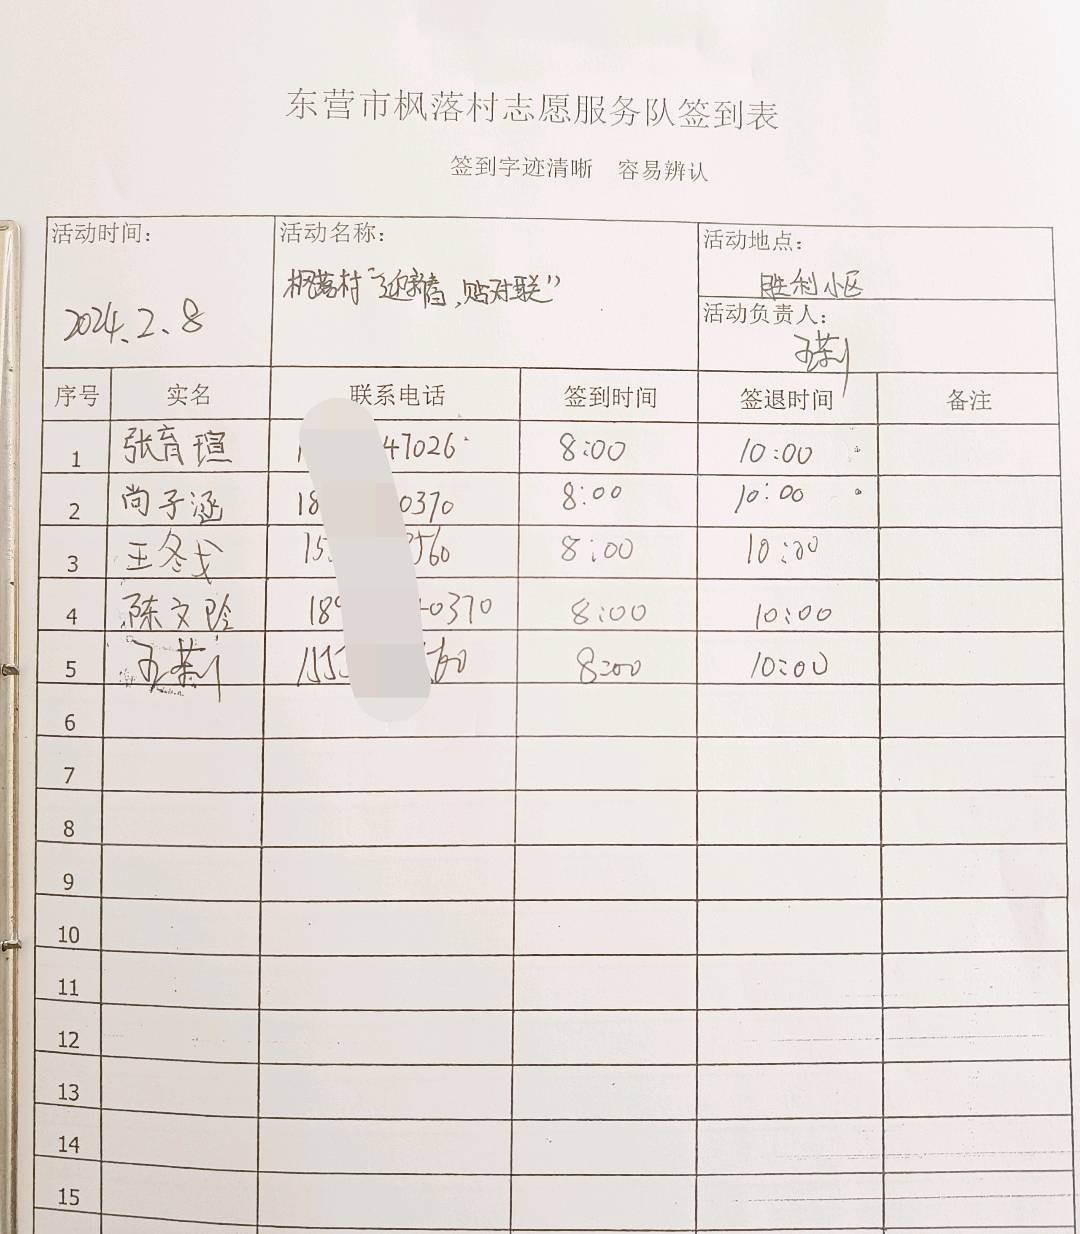 东营市枫落村志愿服务队签到表
签到字迹清晰 容易辨认
活动时间: 活动名称: 活动地点:
枫落村“迎新春,贴对联” 胜利小区
2024.2.8 活动负责人:
王莉
序号 实名 联系电话 签到时间 签退时间 备注
1 张育瑄 1 47026 8:00 10:00
2 尚子涵 18 0370 8:00 10:00
3 王冬戈 15 3560 8:00 10:00
4 陈文玲 189 0370 8:00 10:00
5 王莉 155 60 8:00 10:00
6
7
8
9
10
11
12
13
14
15